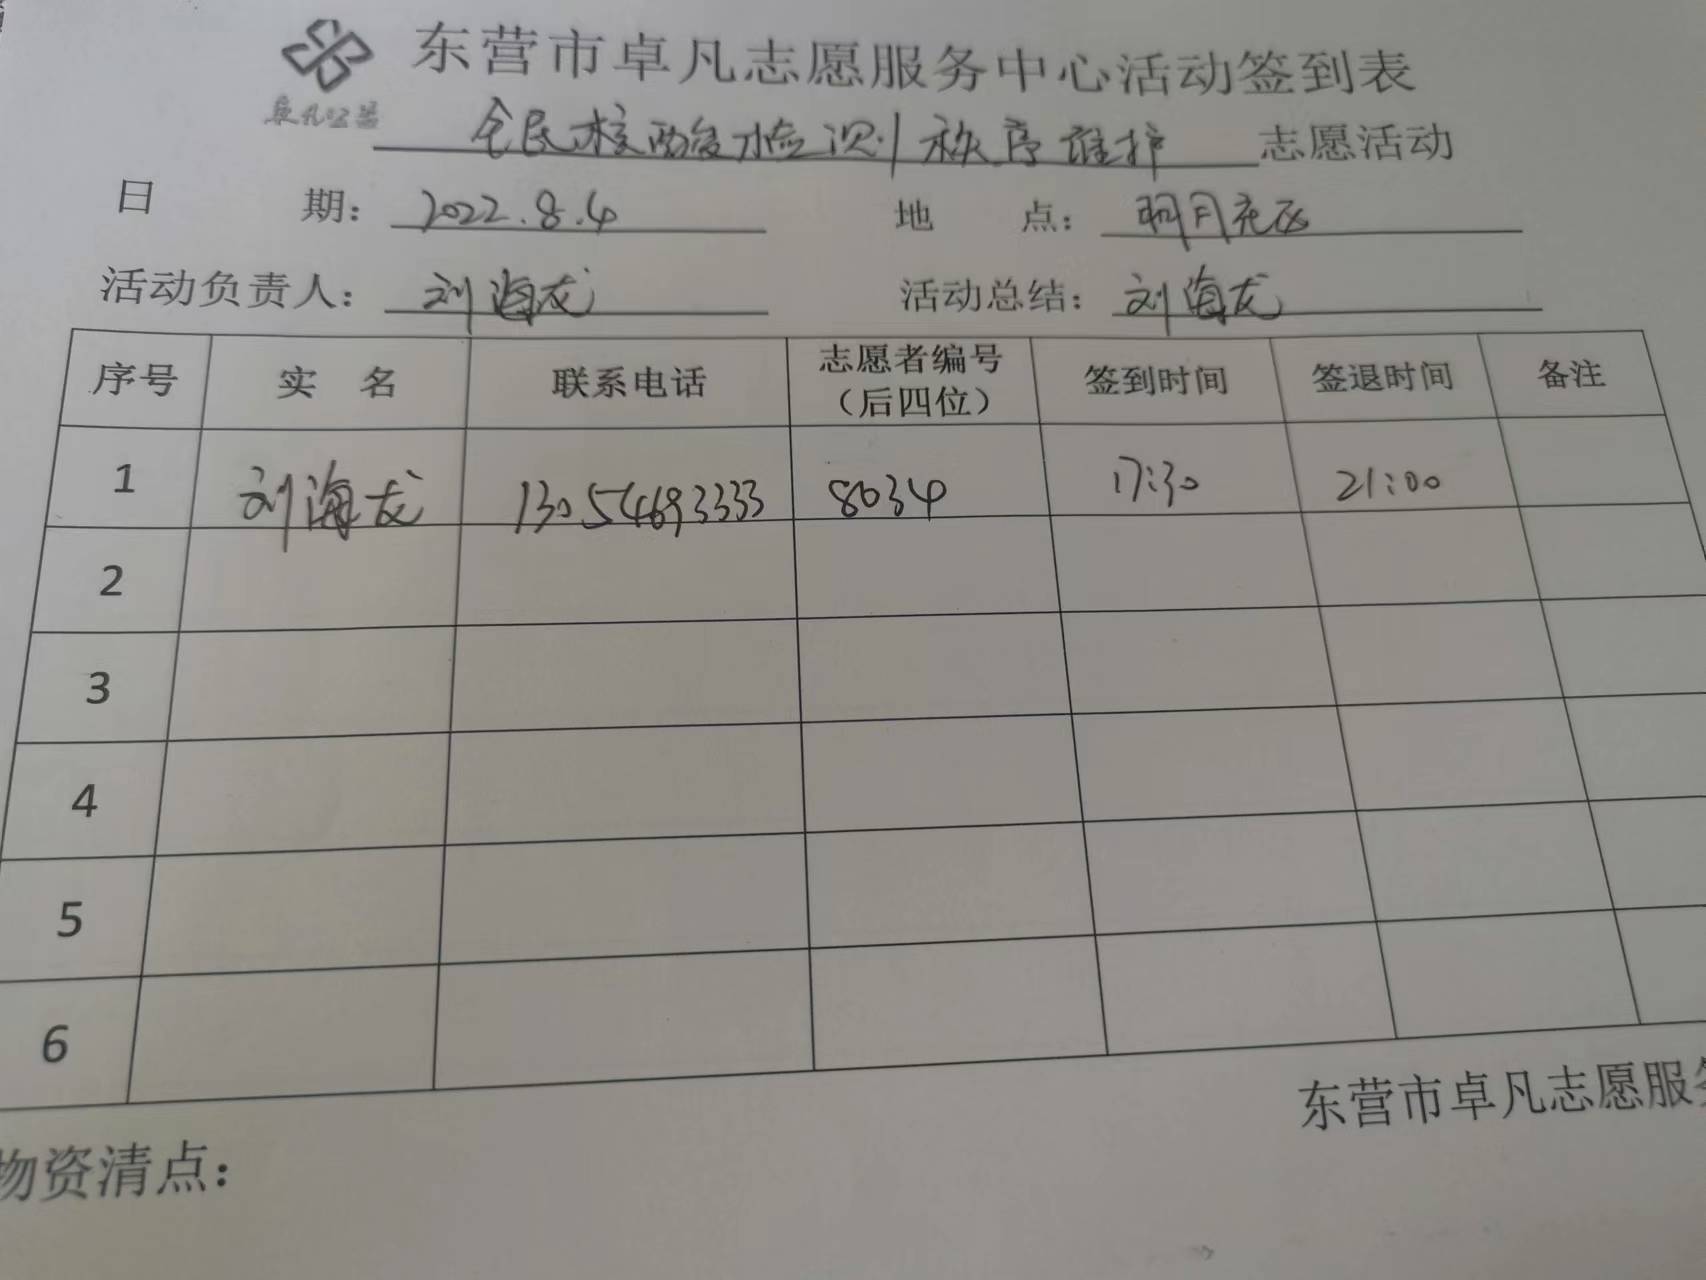 东营市卓凡志愿服务中心活动签到表
卓凡公益
全民核酸检测秩序维护 志愿活动
日 期: 2022.8.4 地 点: 明月社区
活动负责人: 刘海龙 活动总结: 刘海龙
序号 实 名 联系电话 志愿者编号（后四位） 签到时间 签退时间 备注
1 刘海龙 13054693333 8034 17:30 21:00
2
3
4
5
6
东营市卓凡志愿服
物资清点: